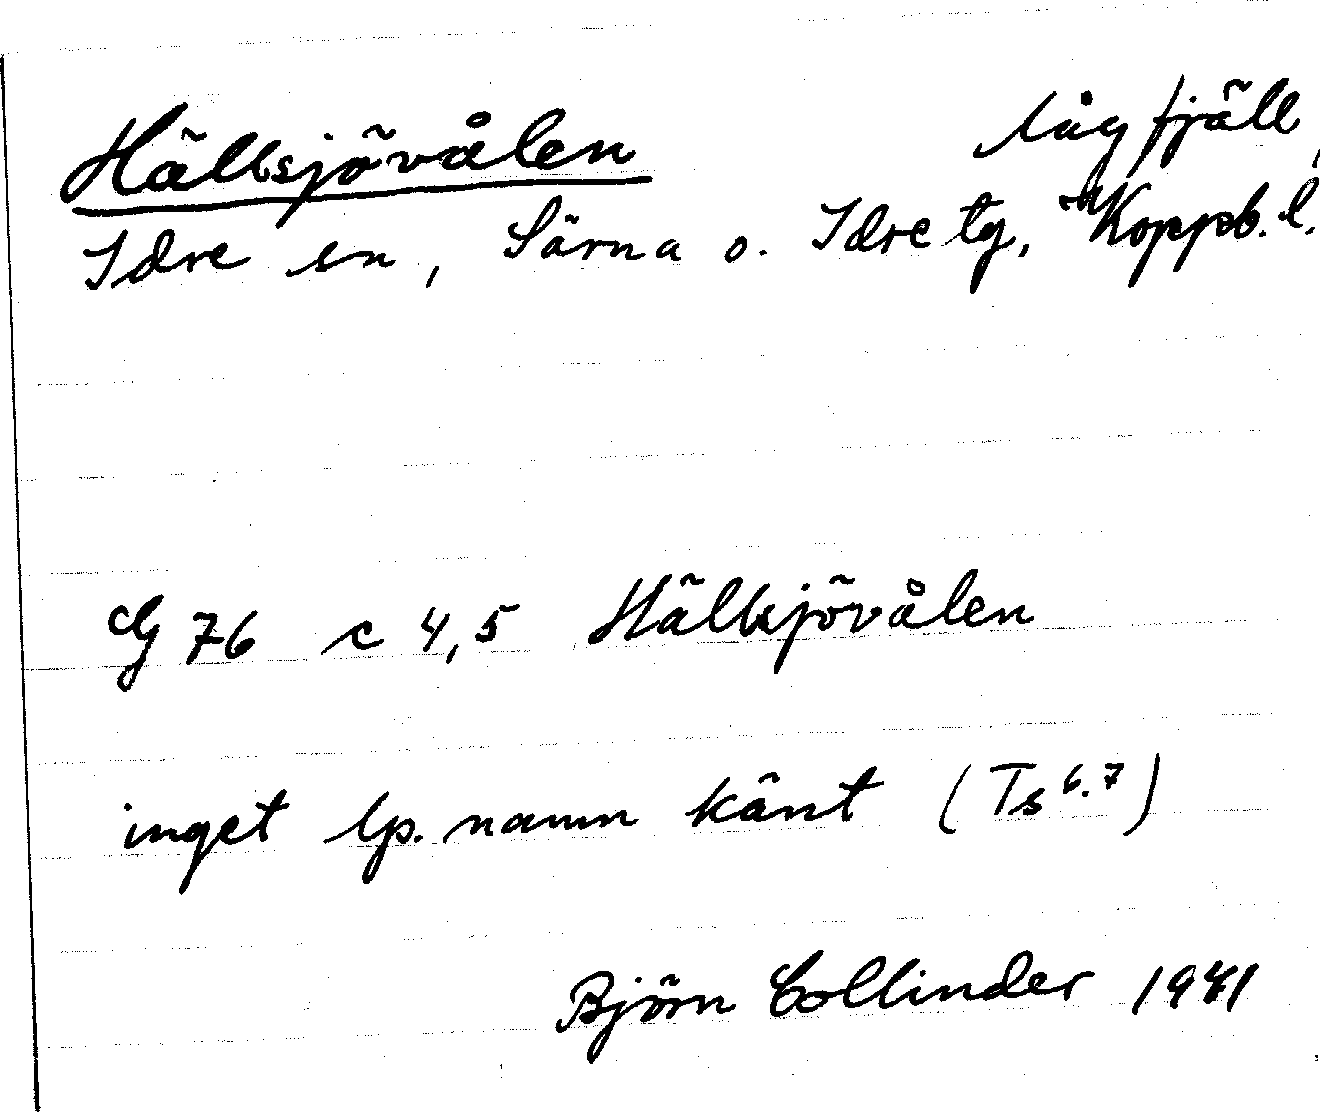 Hällsjövålen lågfjäll,
Idre sn, Särna o. Idre tg, Koppb. l.
G 76 c 4,5 Hällsjövålen
inget lp. namn känt (Ts 6.7)
Björn Collinder 1941